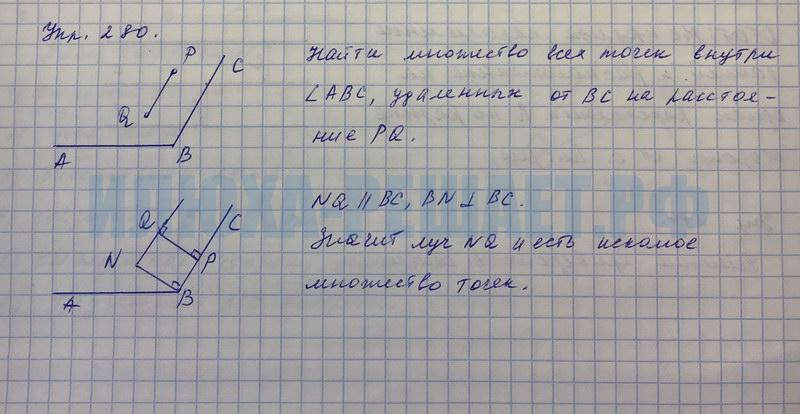 Упр. 280.
P
C
Q
A
B
Найти множество всех точек внутри
∠ABC, удаленных от BC на расстоя-
ние PQ.
ИЛЮХА-РЕШАЕТ.РФ
Q
C
N
P
A
B
NQ || BC, BN ⊥ BC.
Значит луч NQ и есть искомое
множество точек.